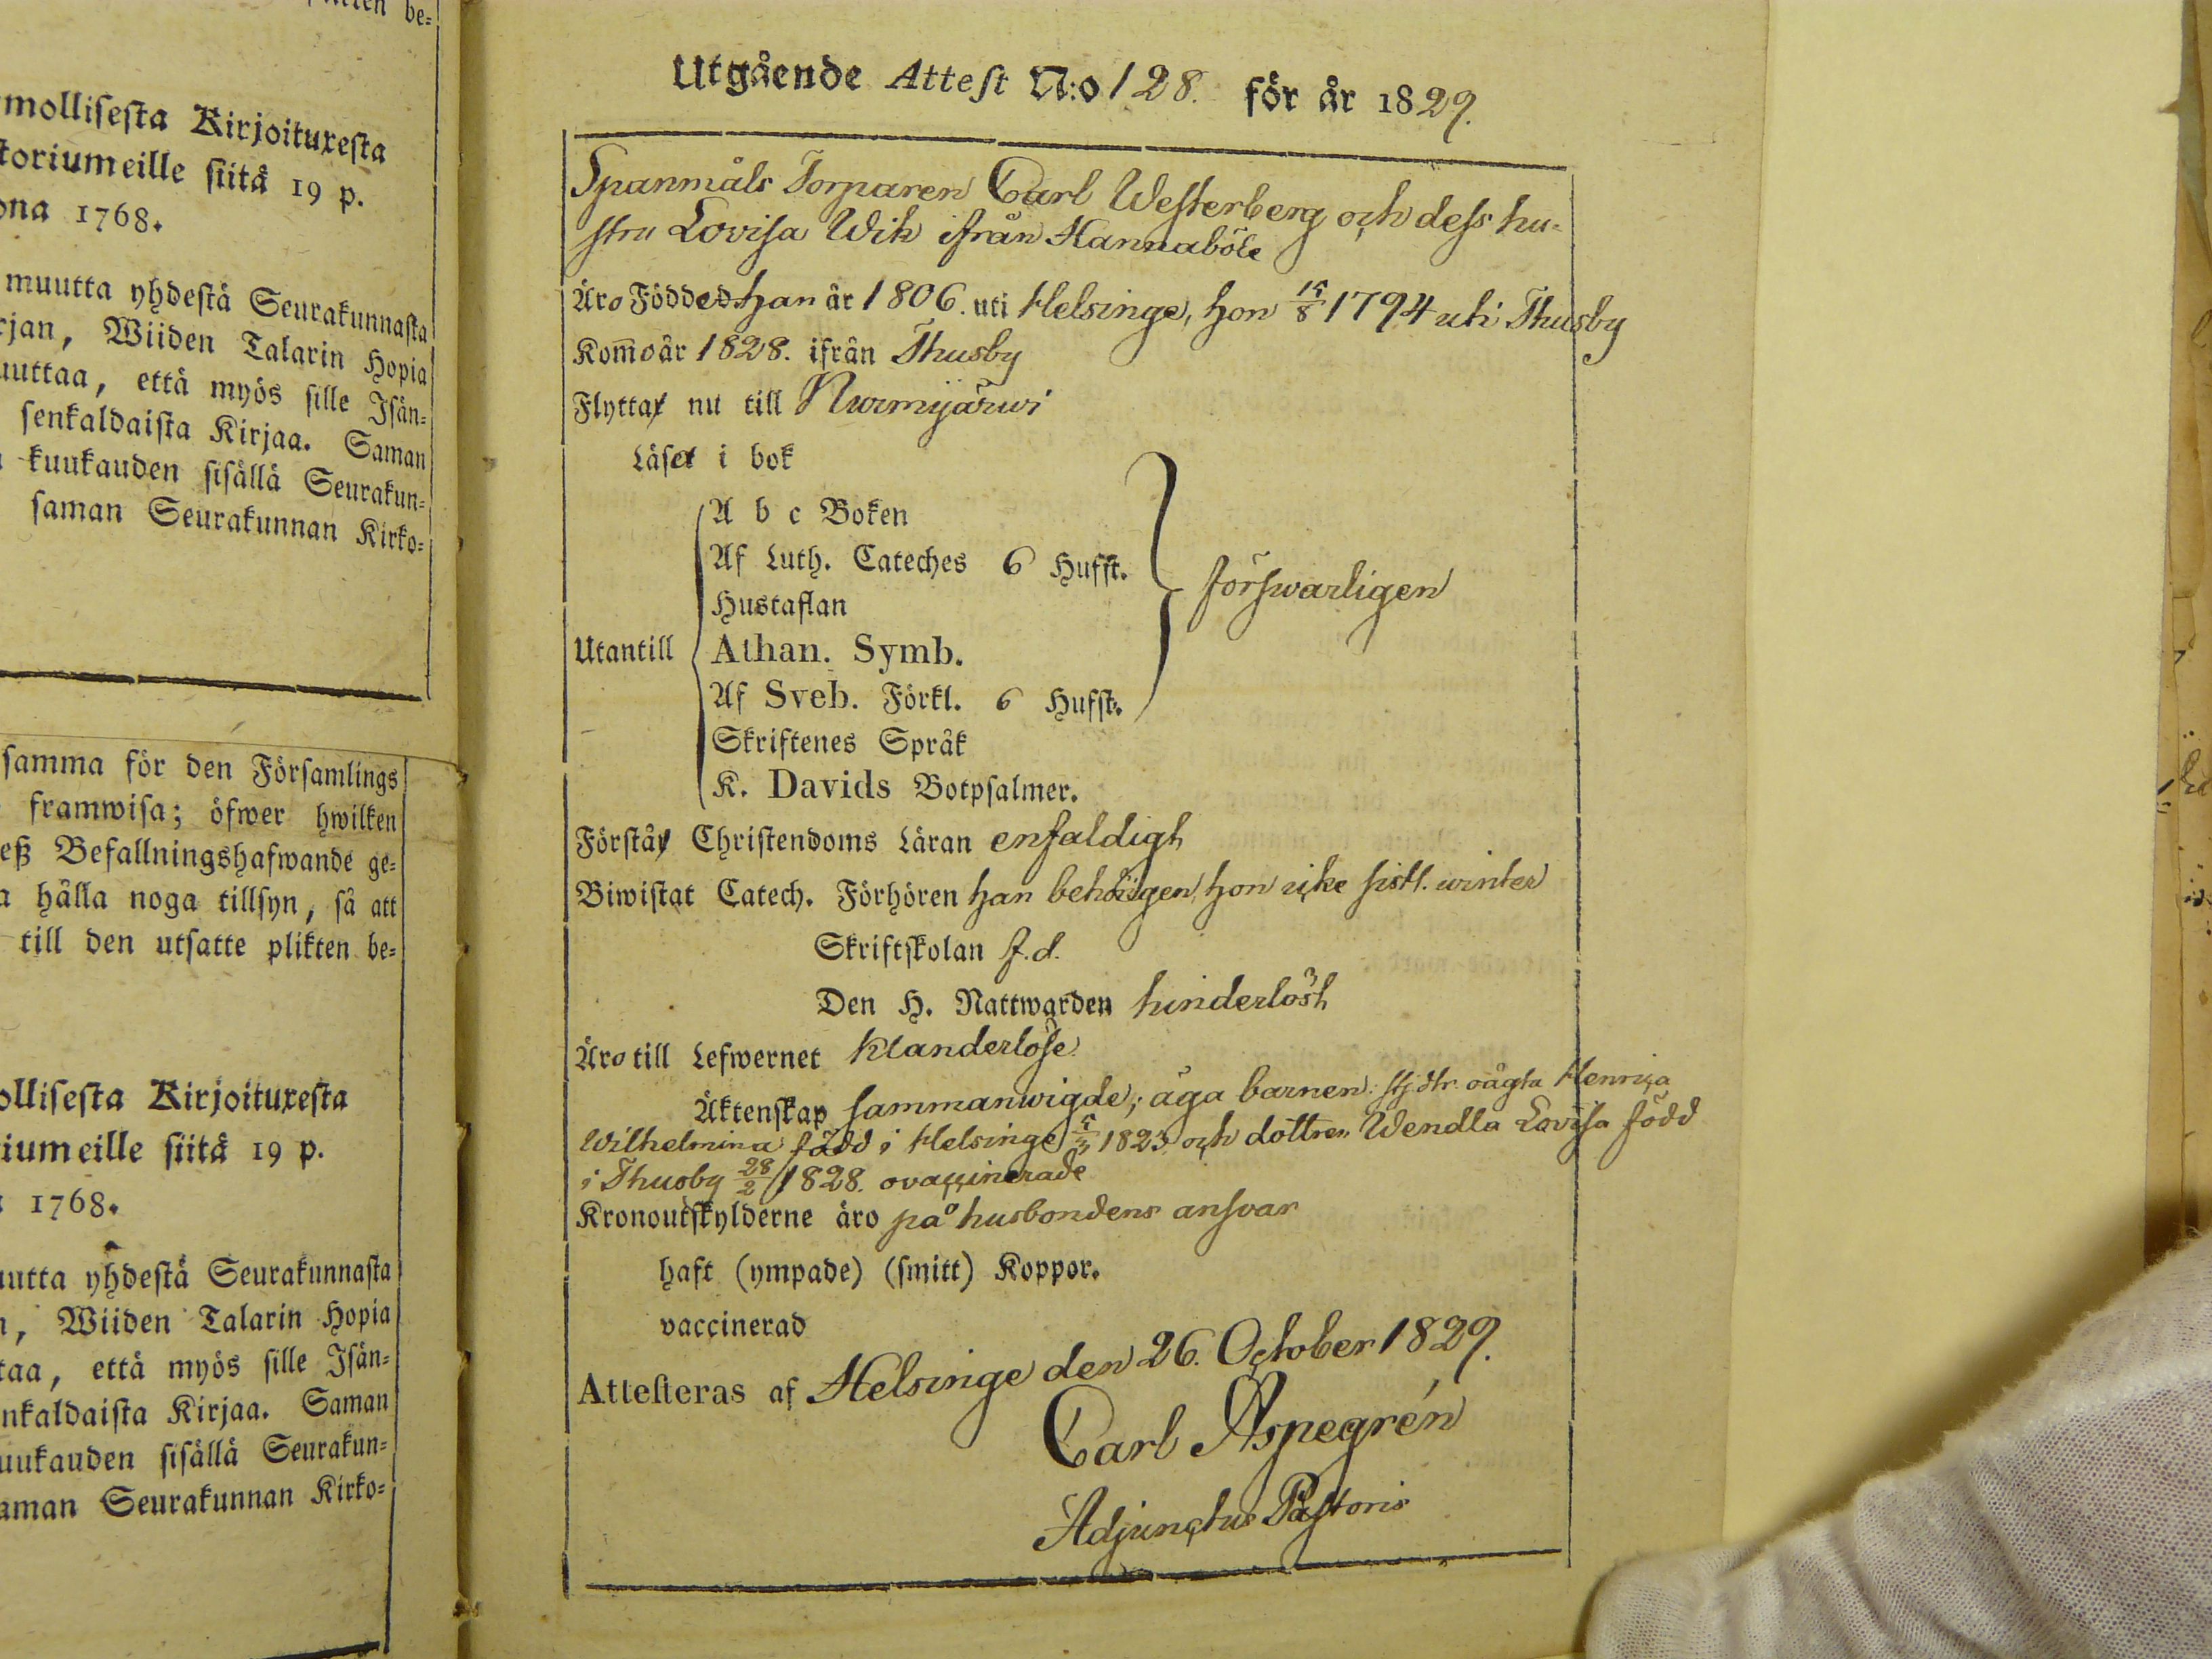 be=
mollisesta Kirjoituxesta
toriumeille siitä 19 p.
ona 1768.
muutta yhdestä Seurakunnasta
rjan, Wiiden Talarin Hopia
uuttaa, että myös sille Isän=
senkaldaista Kirjaa. Saman
kuukauden sisällä Seurakun=
saman Seurakunnan Kirko=
samma för den Församlings
framwisa; öfwer hwilken
eß Befallningshafwande ge=
a hålla noga tillsyn, så att
till den utsatte plikten be=
ollisesta Kirjoituxesta
iumeille siitä 19 p.
1768.
utta yhdestä Seurakunnasta
n, Wiiden Talarin Hopia
taa, että myös sille Isän=
nkaldaista Kirjaa. Saman
uukauden sisällä Seurakun=
aman Seurakunnan Kirko=
Utgående Attest N:o 128. för år 1829.
Spanmåls Torparen Carl Westerberg och dess hu-
stru Lovisa Wik ifrån Hannaböle
Äro Födde han år 1806. uti Helsinge, hon 15/8 1794 uti Thusby
Kom̄o år 1828. ifrån Thusby
Flytta nu till Nurmijärwi
Läsa i bok
A b c Boken
Af Luth. Cateches 6 Hufst.
Hustaflan
Utantill Athan. Symb. försvarligen
Af Sveb. Förkl. 6 Hufst.
Skriftenes Språk
K. Davids Botpsalmer.
Förstå Christendoms Läran enfaldigt
Biwistat Catech. Förhören han behörigen, hon icke sistl. winter
Skriftskolan f.d.
Den H. Nattwarden hinderlöst
Äro till Lefwernet klanderlöse
Äktenskap sammanwigde; äga barnen: stjdtr. oägta Henrica
Wilhelmina född i Helsinge 5/3 1823 och dottren Wendla Lovisa född
i Thusby 28/2 1828. ovaccinerade
Kronoutskylderne äro på husbondens ansvar
haft (ympade) (smitt) Koppor.
vaccinerad
Attesteras af Helsinge den 26. October 1829.
Carl Aspegrén
Adjunctus Pastoris